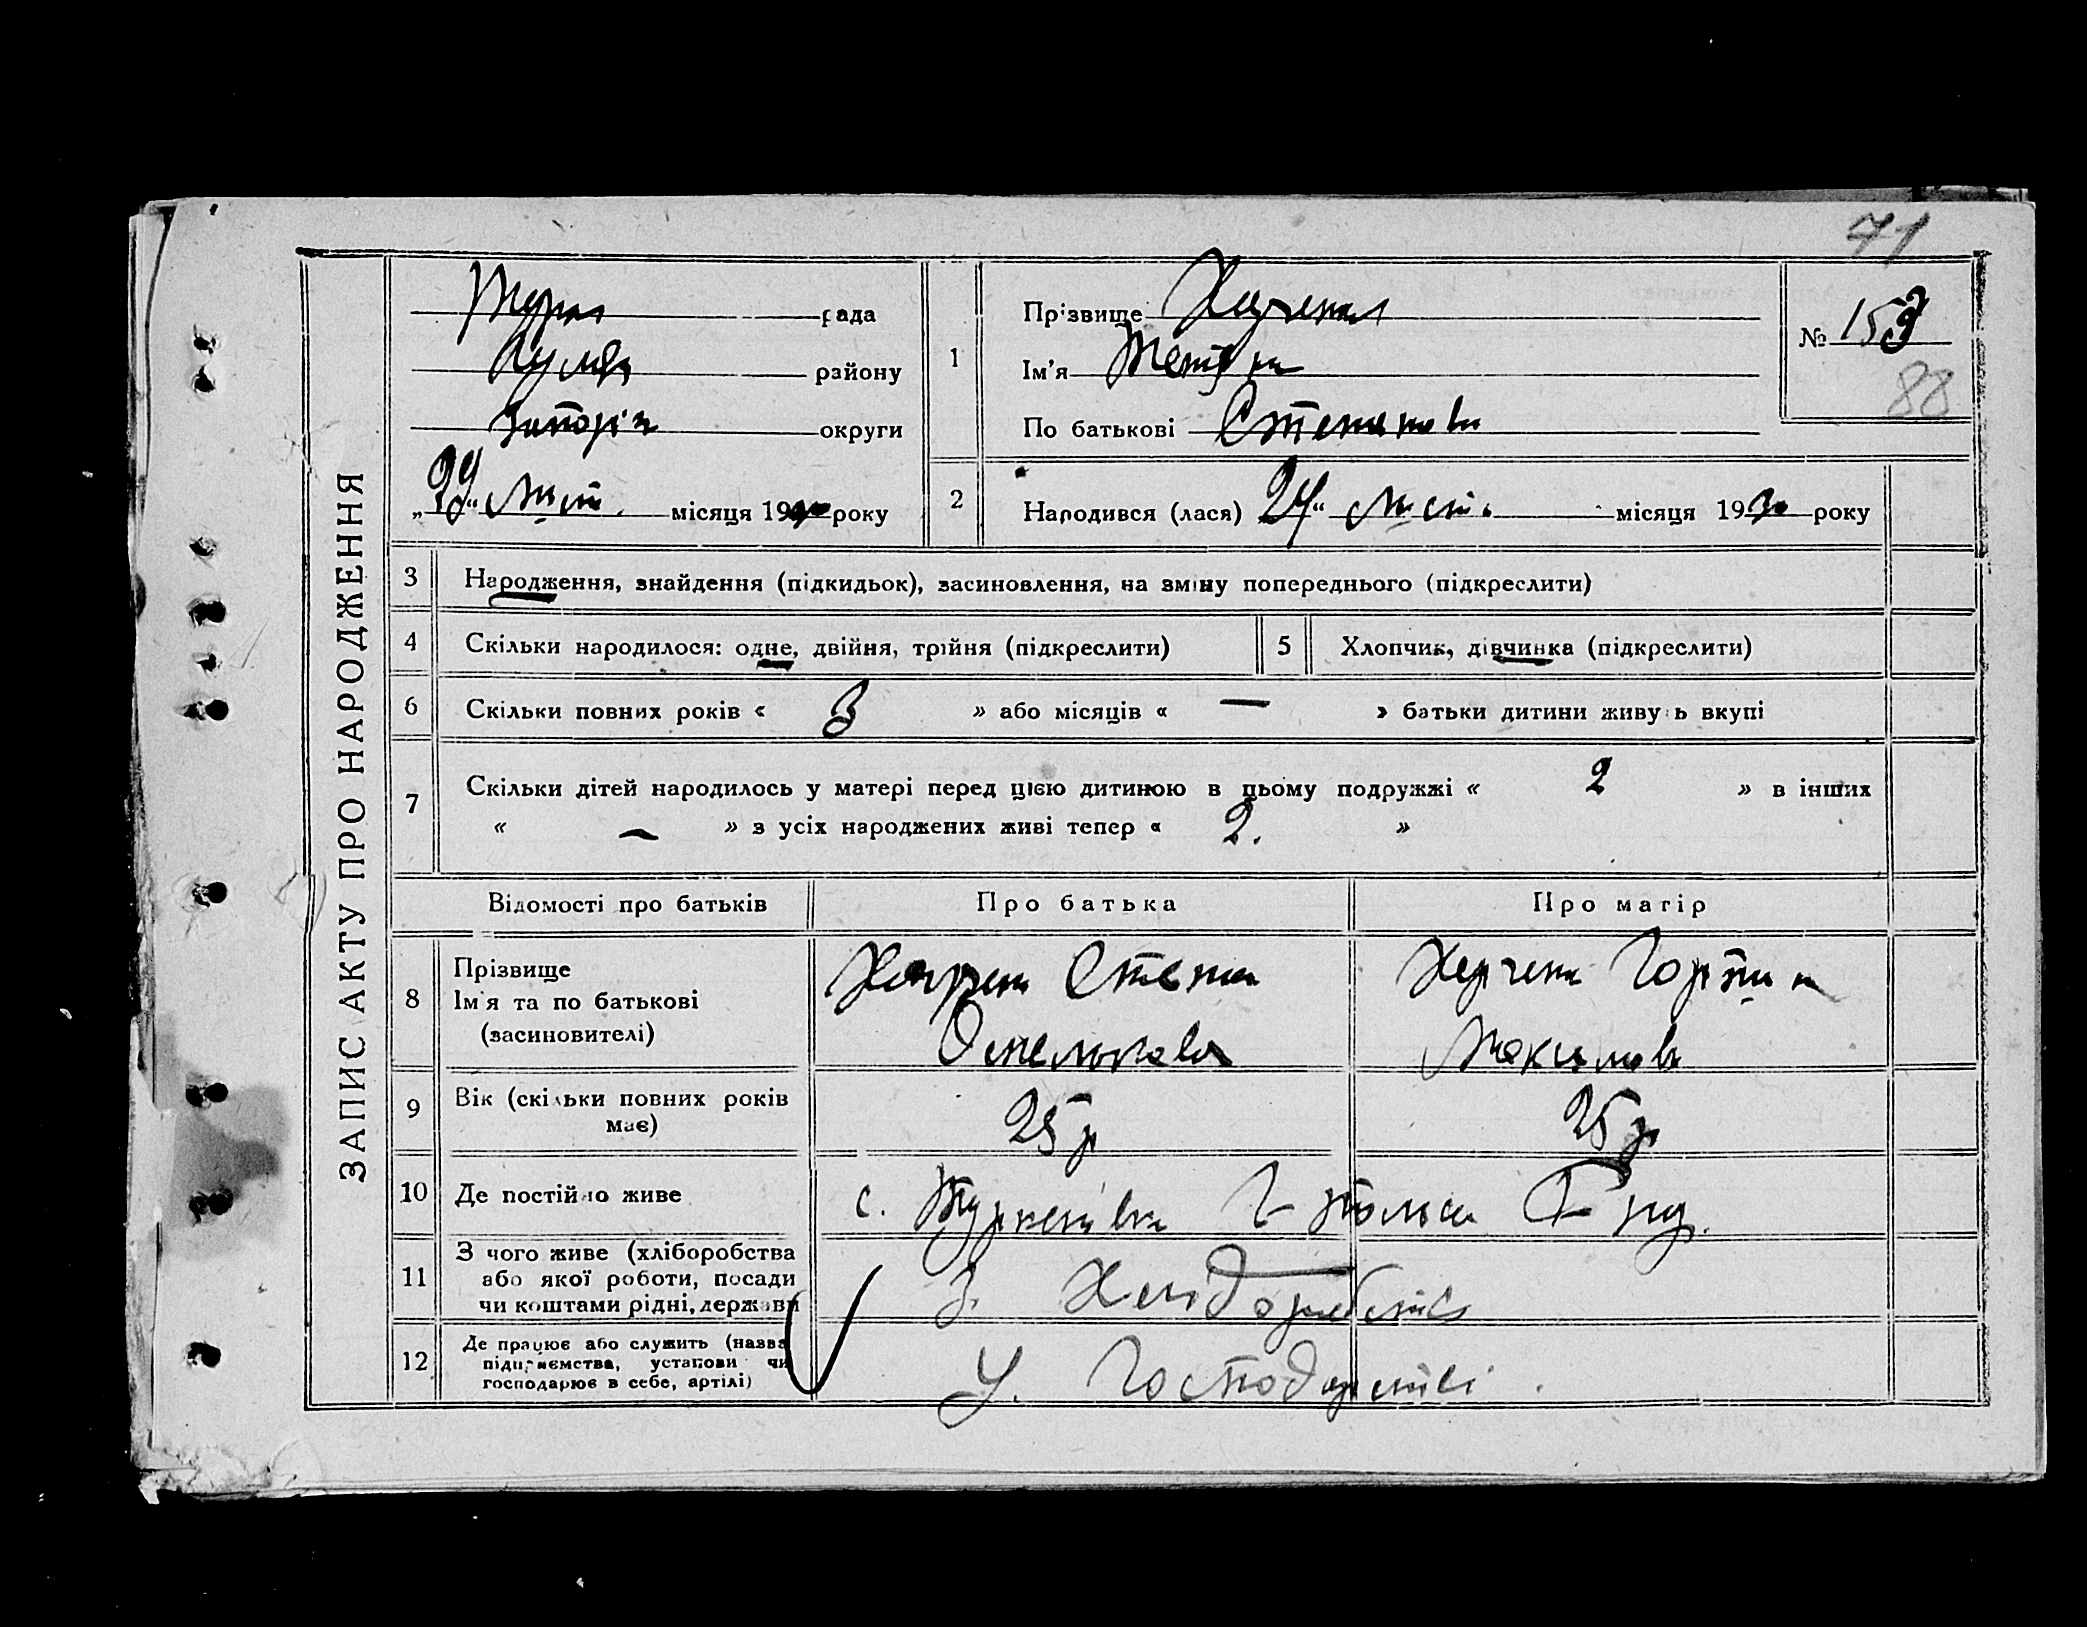 71
рада
району
округи
„29“ Лист. місяця 1930 року
1
Прізвище
Ім'я
По батькові Степанівн
№ 159
88
2
Народився (лася) „24“ Лист. місяця 1930 року
ЗАПИС АКТУ ПРО НАРОДЖЕННЯ
3 Народження, знайдення (підкидьок), засиновлення, на зміну попереднього (підкреслити)
4 Скільки народилося: одне, двійня, трійня (підкреслити) 5 Хлопчик, дівчинка (підкреслити)
6 Скільки повних років « 3 » або місяців « — » батьки дитини живуть вкупі
7 Скільки дітей народилось у матері перед цією дитиною в цьому подружжі « 2 » в інших
« — » з усіх народжених живі тепер « 2. »
Відомості про батьків Про батька Про матір
8 Прізвище
Ім'я та по батькові
(засиновителі)
Степан
Омелькович
Максимов
9 Вік (скільки повних років
має)
25 р
25 р
10 Де постійно живе с.
11 З чого живе (хліборобства
або якої роботи, посади
чи коштами рідні, держави
З. Хліборобства
12 Де працює або служить (назва
підприємства, установи чи
господарює в себе, артілі)
У. Господарстві.